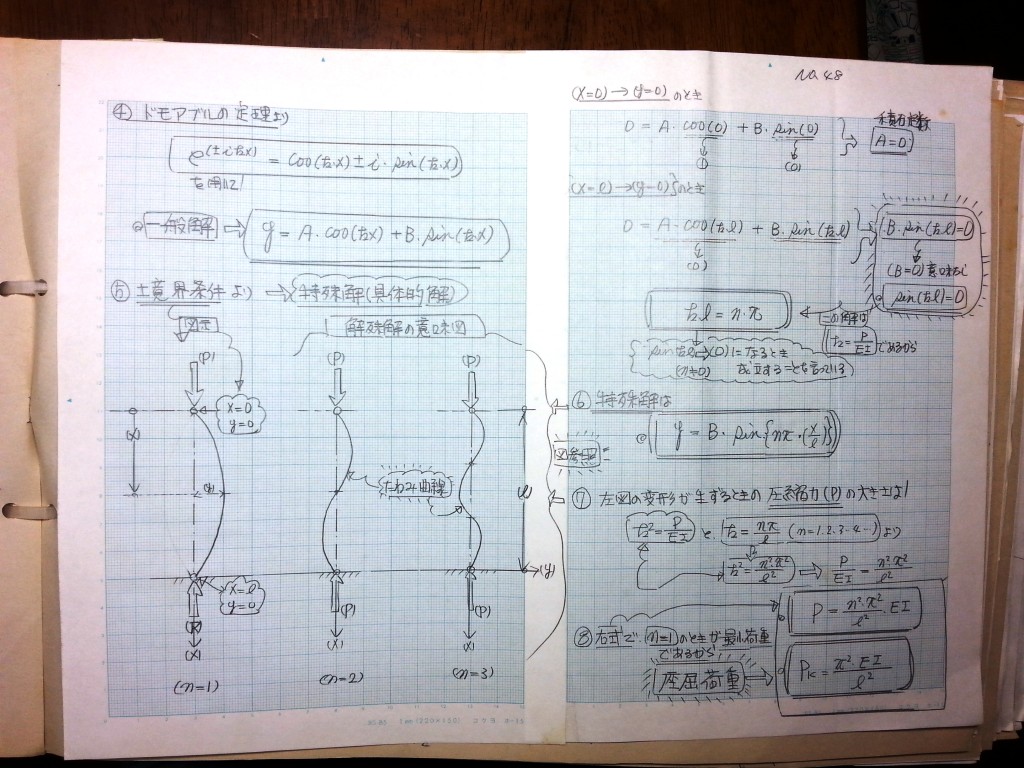 ④ ドモアブルの定理より
e^(±i・kx) = cos(kx) ± i・sin(kx)
を用いて
◎ 一般解 ⇒ y = A・cos(kx) + B・sin(kx)
⑤ 境界条件より → 特殊解(具体的解)
図示
解殊解の意味図
(P) (P) (P)
x=0
y=0
(x)
(y)
たわみ曲線
l
(y)
x=l
y=0
(P) (P) (P)
(x) (x) (x)
(n=1) (n=2) (n=3)
No.48
(x=0) → (y=0) のとき
0 = A・cos(0) + B・sin(0)
(1) (0)
積分定数
A=0
(x=l) → (y=0) のとき
0 = A・cos(kl) + B・sin(kl)
(0)
B・sin(kl)=0
(B=0) 意味なし
sin(kl)=0
この解は
kl = n・π
k²=P/EI であるから
sin kl → (0) になるとき
(n≠0) 成立することを言っている
⑥ 特殊解は
◎ y = B・sin{nπ・(x/l)}
図参照
⑦ 左図の変形が生ずるときの圧縮力(P)の大きさは!
k²=P/EI と、k=nπ/l (n=1.2.3.4…) より
k²=n²π²/l² ⇒ P/EI = n²π²/l²
P = n²・π²/l²・EI
⑧ 右式で (n=1) のときが最小荷重
であるから
座屈荷重 ⇒
Pk = π²・EI/l²